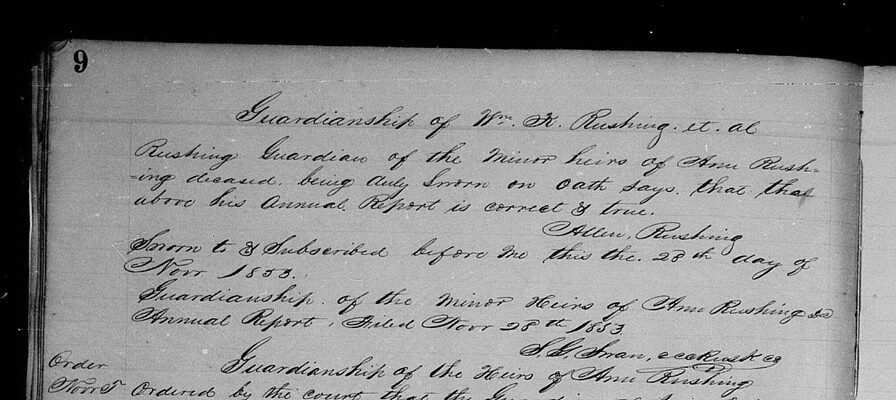 9
Guardianship of Wm. K. Rushing. et. al
Rushing Guardian of the Minor heirs of Ann Rush=
=ing deceased. being duly Sworn on oath says. that the
above his Annual Report is correct & true.
Allen, Rushing
Sworn to & Subscribed before me this the. 28th day of
Novr 1853.
Guardianship. of the Minor Heirs of Ann Rushing
Annual Report, Filed Novr 28th 1853
S. G. Swan, cccRusk co
Order
Guardianship of the Heirs of Ann Rushing
Novr T Ordered by the court that the